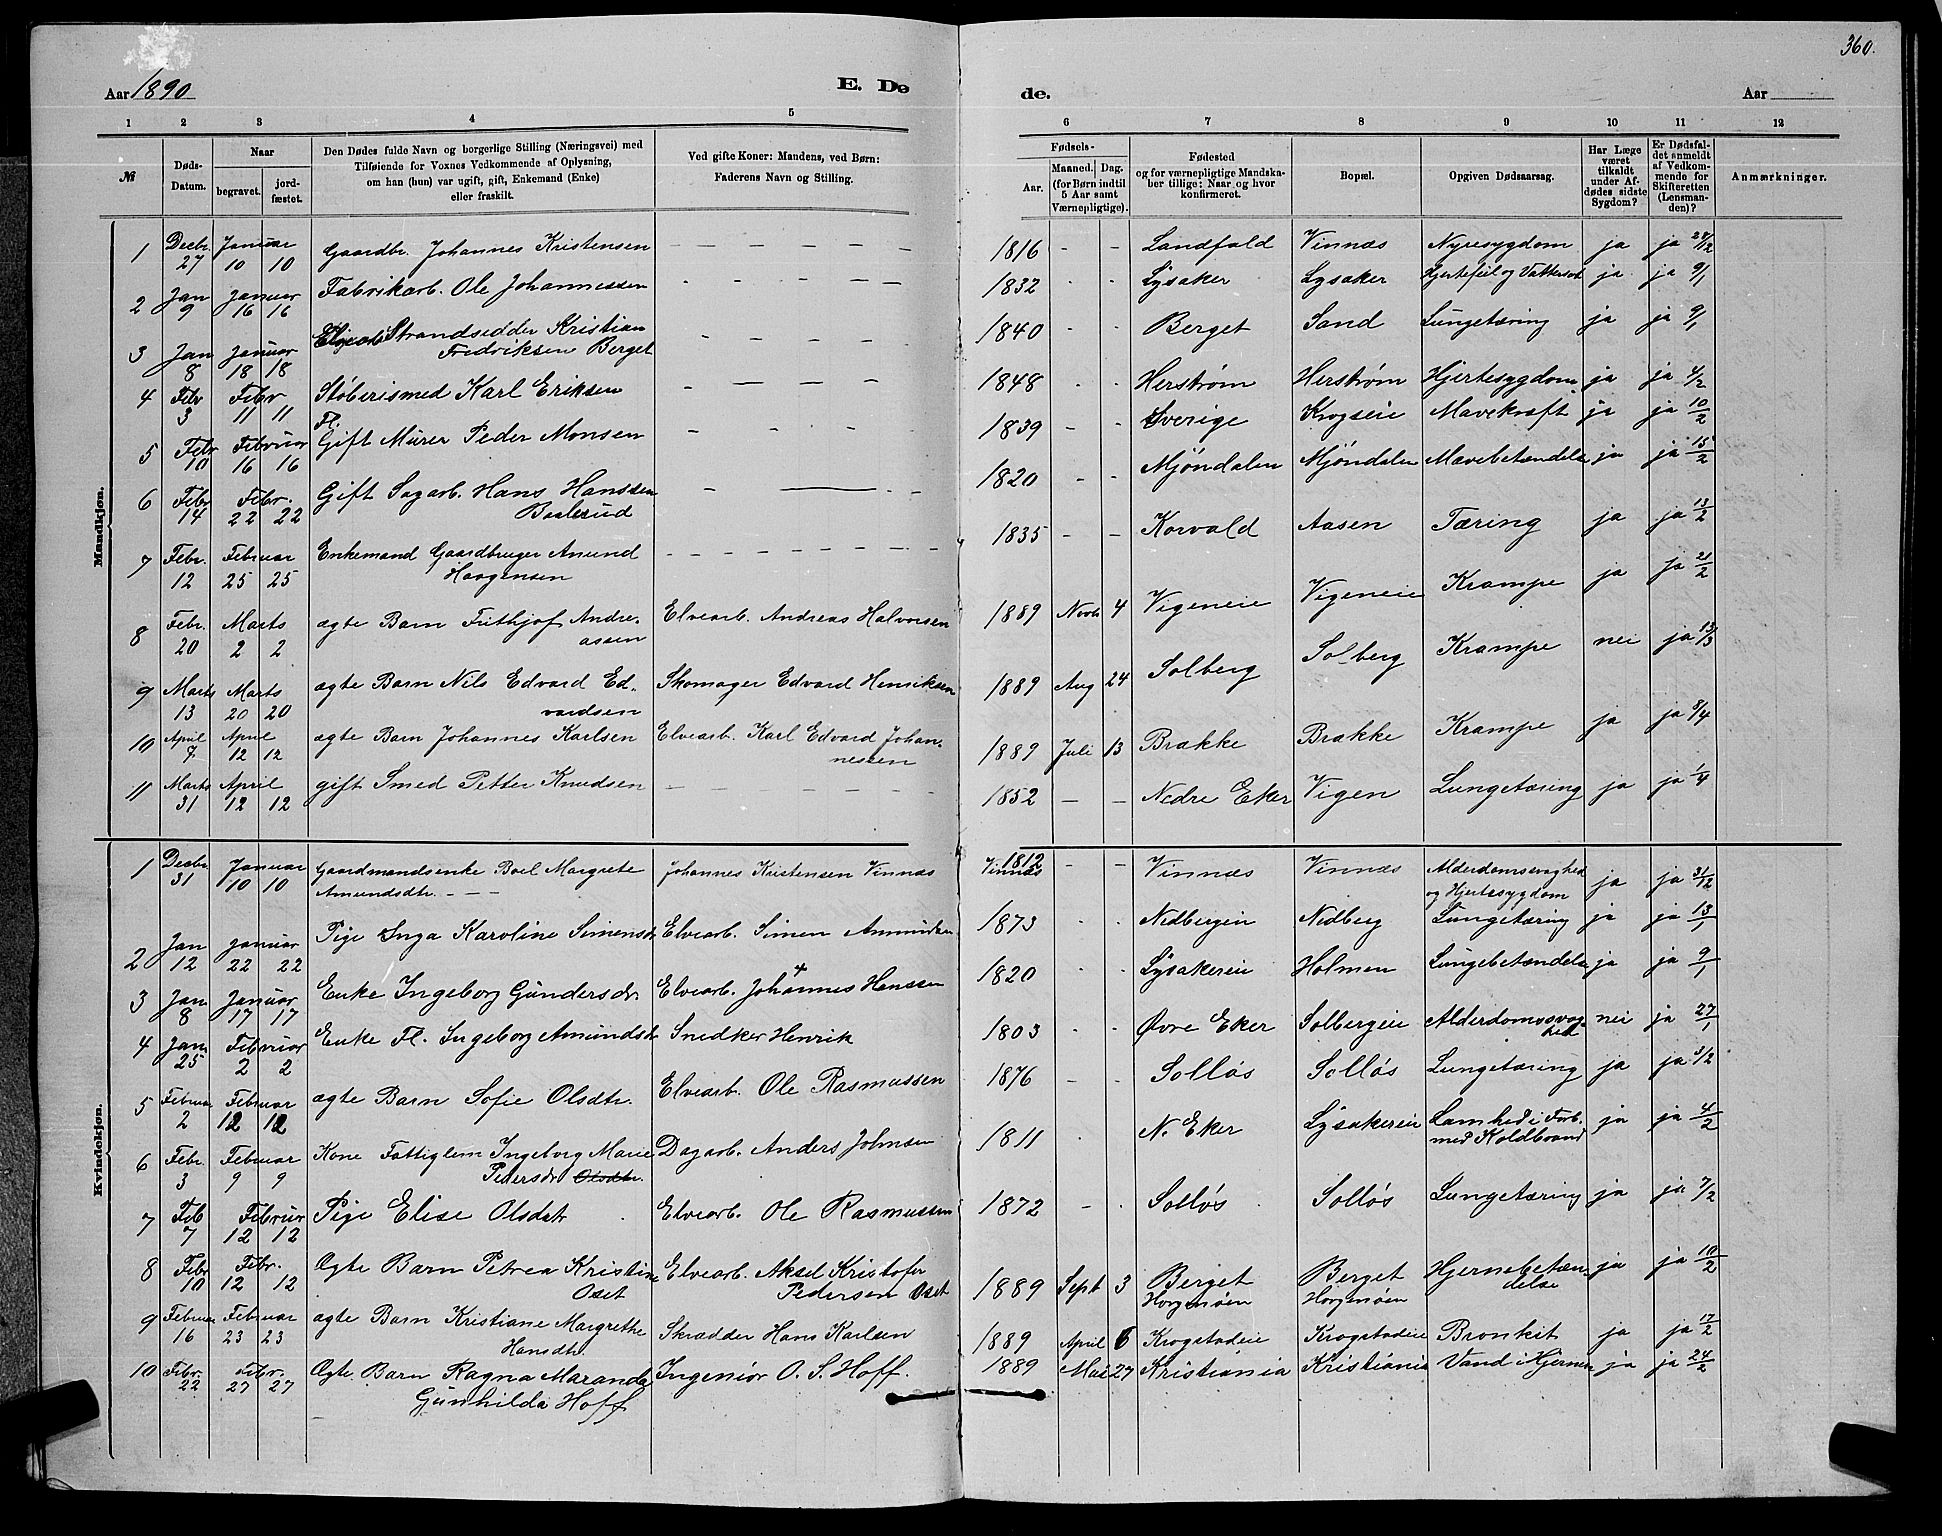 360.
Aar 1890
E. De
de.
Aar
1 2 3 4 5
6 7 8 9 10 11 12
№
Døds-Datum.
Naar
begravet.
jord-fæstet.
Den Dødes fulde Navn og borgerlige Stilling (Næringsvei) med
Tilføiende for Voxnes Vedkommende af Oplysning,
om han (hun) var ugift, gift, Enkemand (Enke)
eller fraskilt.
Ved gifte Koner: Mandens, ved Børn:
Faderens Navn og Stilling.
Fødsels-
Aar.
Maaned. Dag.
(for Børn indtil
5 Aar samt
Værnepligtige).
Fødested
og for værnepligtige Mandska-
ber tillige: Naar og hvor
konfirmeret.
Bopæl.
Opgiven Dødsaarsag.
Har Læge
været
tilkaldt
under Af-
dødes sidste
Sygdom?
Er Dødsfal-
det anmeldt
af Vedkom-
mende for
Skifteretten
(Lensman-
den)?
Anmærkninger.
Mandkjøn.
1 Decbr. 27 Januar 10 10 Gaardbr. Johannes Kristensen 1816 - - Landfald Vinnæs Nyresygdom ja ja 28/12
2 Jan 9 Januar 16 16 Fabrikarb. Ole Johannessen 1832 - - Lysaker Lysaker Hjertefeil og Vattersot ja ja 9/1
3 Jan 8 Januar 18 18 Strandsidder Kristian
Fredriksen Berget 1840 - - Berget Sand Lungetæring ja ja 9/1
4 Febr 3 Febr 11 11 Støberismed Karl Eriksen 1848 - - Herstrøm Herstrøm Hjertesygdom ja ja 4/2
Fl.
5 Febr 10 Februar 16 16 Gift Murer Peder Monsen 1839 - - Sverige Krogseie Mavekræft ja ja 10/2
6 Febr 14 Febr. 22 22 Gift Sagarb. Hans Hanssen
Baalsrud 1820 - - Mjøndalen Mjøndalen Mavebetændelse ja ja 15/2
7 Febr. 12 Februar 25 25 Enkemand Gaardbruger Amund
Haagensen 1835 - - Korvald Aasen Tæring ja ja 13/2
8 Febr. 20 Marts 2 2 ægte Barn Frithjof Andre-
assen Elvearb. Andreas Halvorsen 1889 Novb 4 Vigeneie Vigeneie Krampe ja ja 21/2
9 Marts 13 Marts 20 20 ægte Barn Nils Edvard Ed-
vardsen Skomager Edvard Henriksen 1889 Aug 24 Solberg Solberg Krampe nei ja 13/3
10 April 7. April 12 12 ægte Barn Johannes Karlsen Elvearb. Karl Edvard Johan-
nessen 1889 Juli 13 Brække Brække Krampe ja ja 8/4
11 Marts 31 April 12 12 gift Smed Petter Knudsen 1852 - - Nedre Eker Vigen Lungetæring ja ja 1/4
Kvindekjøn.
1 Decbr. 31 Januar 10 10 Gaardmandsenke Boel Margrete
Amundsdtr. Johannes Kristensen Vinnæs Vinnæs 1812 - - Vinnæs Vinnæs Alderdomssvaghed
og Hjertesygdom ja ja 31/12
2 Jan 12 Januar 22 22 Pige Inga Karoline Simensdr Elvearb. Simen Amundsen 1873 - - Nedbergeie Nedberg Lungetæring ja ja 13/1
3 Jan 8 Januar 17 17 Enke Ingeborg Gundersdr. Elvearb. Johannes Hanssen 1820 - - Lysakereie Holmen Lungebetændelse ja ja 9/1
4 Jan 25 Februar 2 2 Enke Fl. Ingeborg Amundsdtr Snedker Henrik 1803 - - Øvre Eker Solbergeie Alderdomssvag-
hed nei ja 27/1
5 Februar 2 Februar 12 12 ægte Barn Sofie Olsdtr. Elvearb. Ole Rasmussen 1876 - - Solløs Solløs Lungetæring ja ja 3/2
6 Febr. 3 Februar 9 9 Kone Fattiglem Ingeborg Marie
Pedersdr Olsdtr. Dagarb. Anders Johnsen 1811 - N. Eker Lysakereie Lamhed i Forb.
med Koldbrand ja ja 4/2
7 Feb 7 Februar 12 12 Pige Elise Olsdatr Elvearb. Ole Rasmussen 1872 - - Solløs Solløs Lungetæring ja ja 7/2
8 Febr 10 Febr. 12 12 Ægte Barn Petrea Kristine
Oset Elvearb. Aksel Kristofer
Pedersen Oset 1889 Sept 3 Berget
Horgenøen Berget
Horgenøen Hjernebetæn-
delse ja ja 10/2
9 Februar 16 Februar 23 23 ægte Barn Kristiane Margrethe
Hansdtr. Skrædder Hans Karlsen 1889 April 6 Krogstadeie Krogstadeie Bronkit ja ja 17/2
10 Febr. 22 Febr. 27 27 Ægte Barn Ragna Maranda
Gunhilda Hoff Ingeniør O. S. Hoff. 1889 Mai 27 Kristiania Kristiania Vand i Hjernen ja ja 24/2